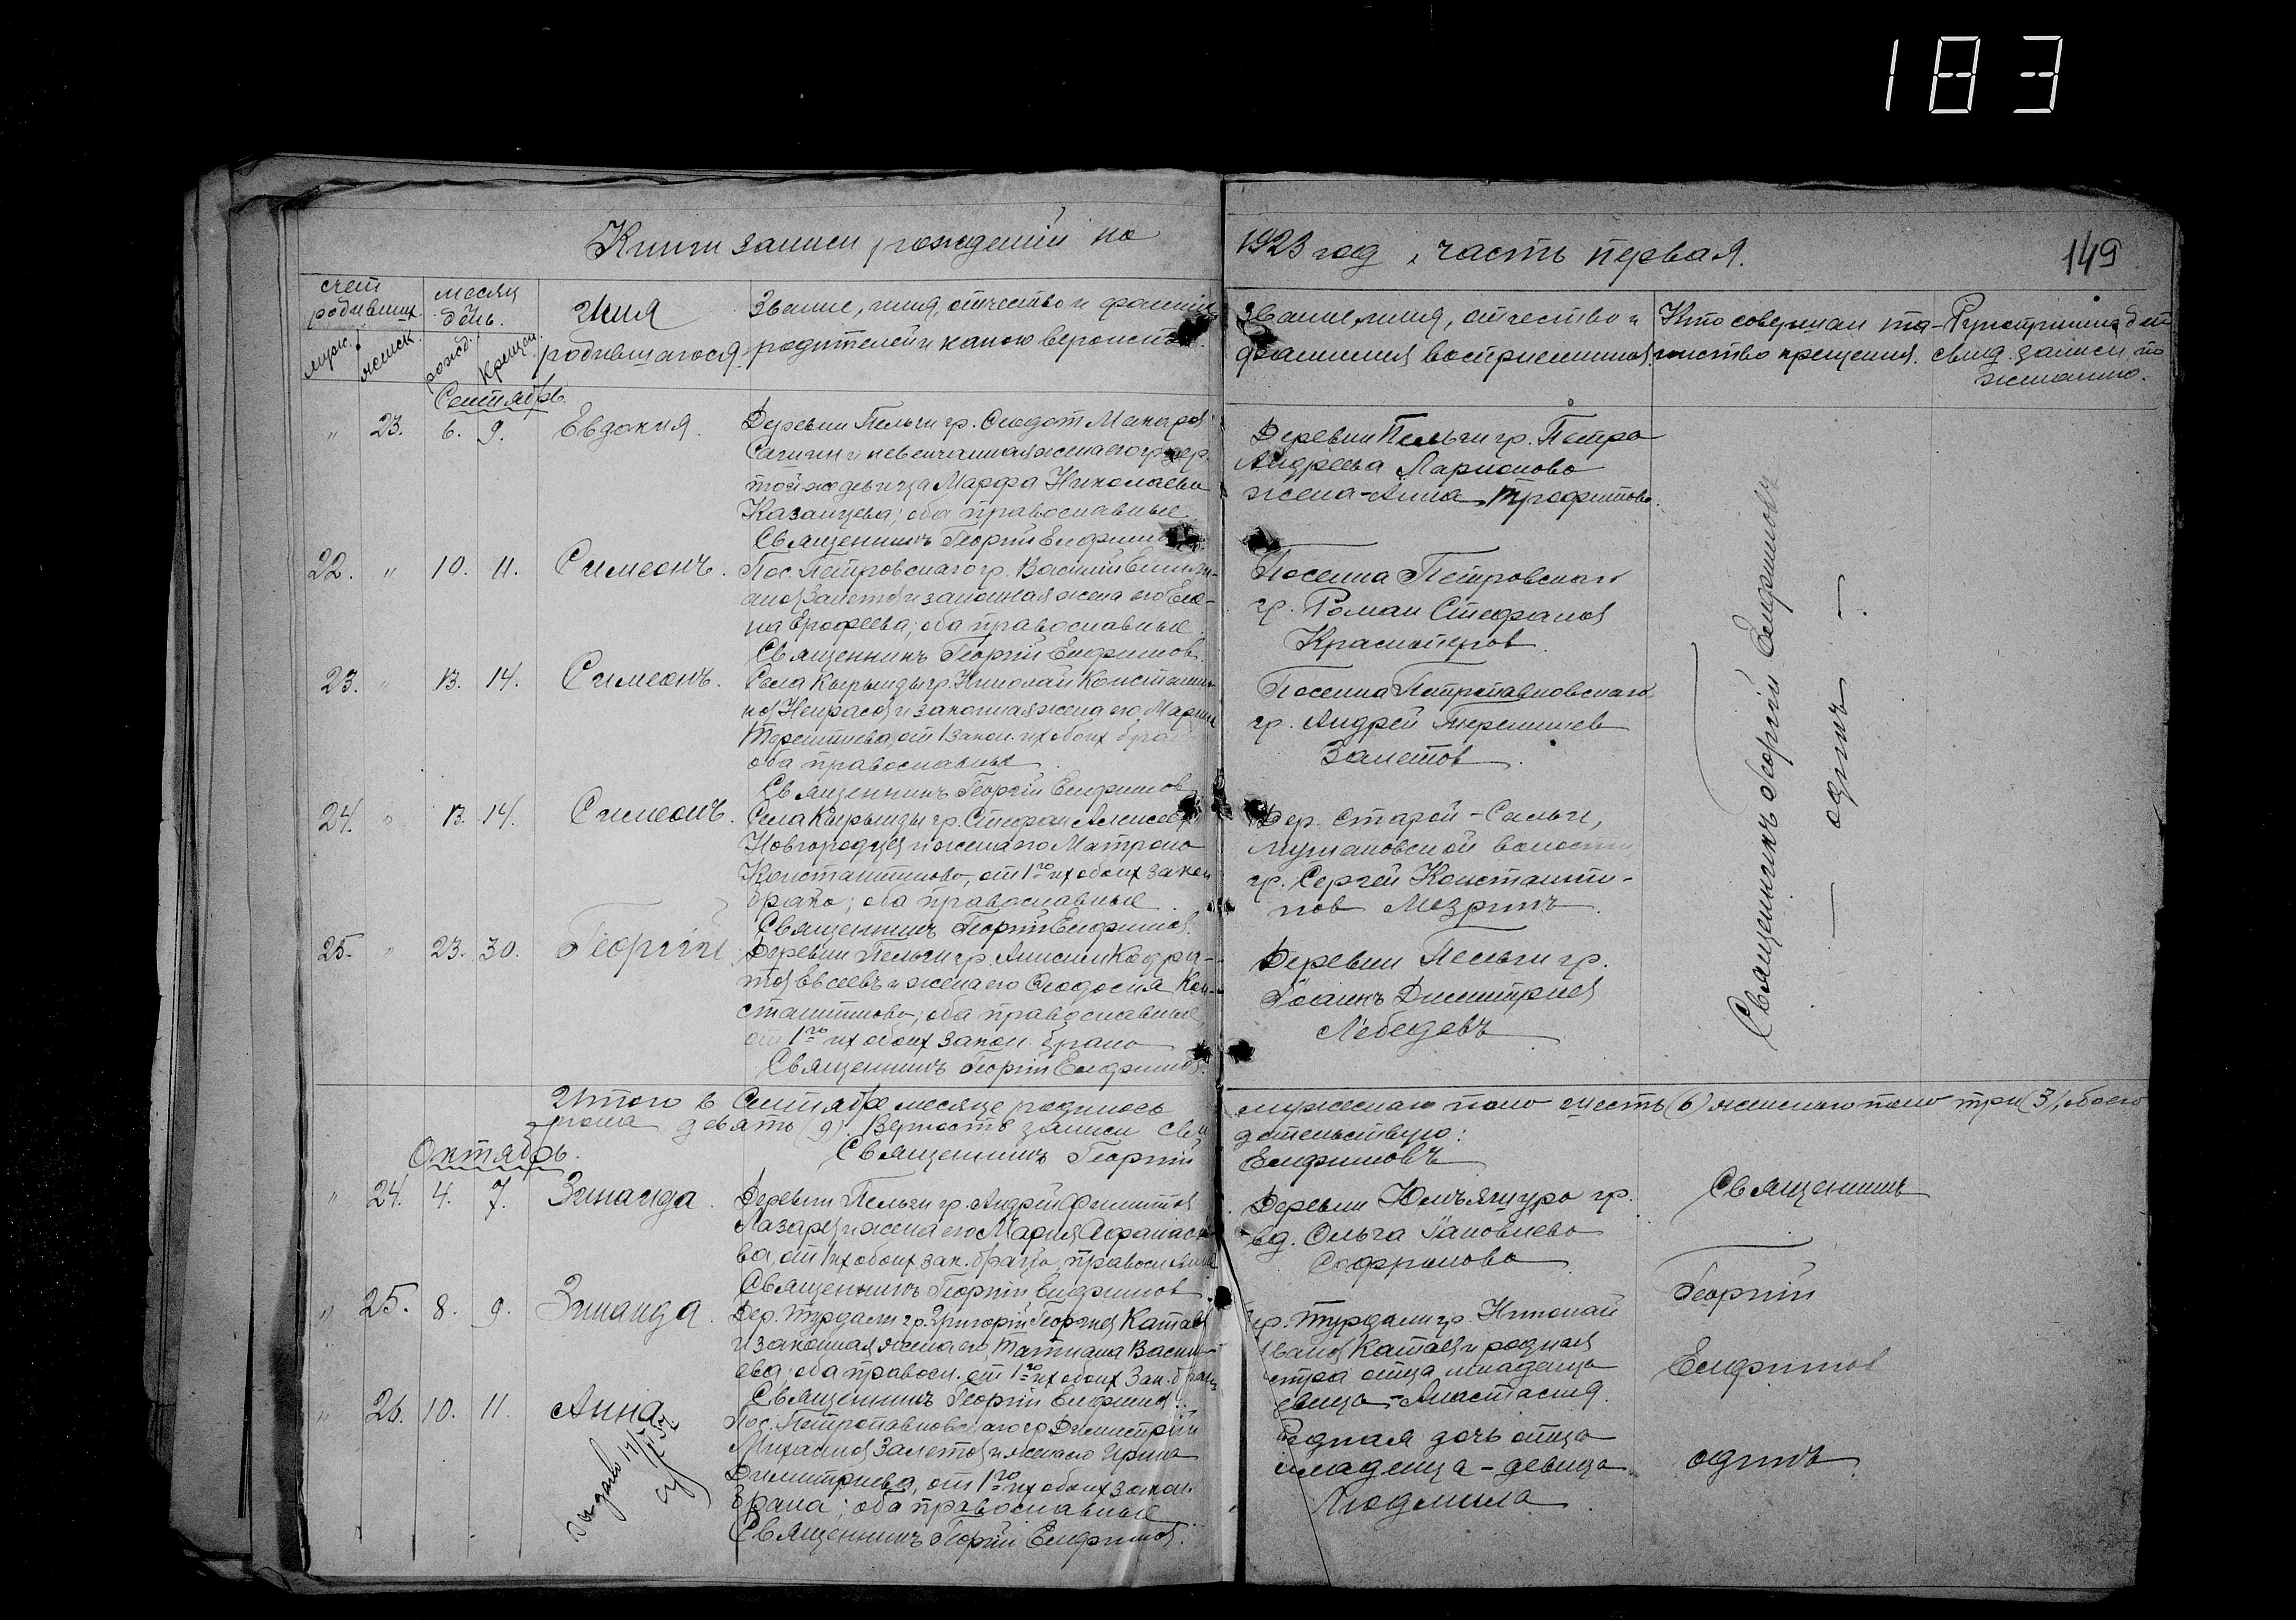 183
Книги записи рождений на
1923 год, часть первая.
149
счет родивших.
муж. женск.
месяц день.
рожд. крещен.
Имя родившагося
Звание, имя, отчество и фамилия
родителей и какого вероисп.
Звание, имя, отчество и
фамилия восприемников
Кто совершал та-
инство крещения.
свид. записи по
желанию.
Сентябрь.
" 23. 6. 9. Евдокия.
Деревни Пельги гр. Феодот Макаров
и невенчанная жена его гр. дер.
той-же девица Марфа Николаева
Казанцева; оба православные
Священникъ Георгий Елфимов
Деревни Пельги гр. Петра
Андреева Ларионова
жена-Анна Трофимова.
22. " 10. 11. Симеонъ.
Пос. Петровскаго гр. Василий Емильи-
анов Заметов и законная жена его Еле-
на Ерофеева; оба православные.
Священникъ Георгий Елфимов.
Поселка Петровскаго
гр. Роман Стефанов
Красноперов.
23. " 13. 14. Симеонъ.
Села Кырынды гр. Николай Константи-
нов Некрасов и законная жена его Мария
Терентиева, от 1 закон. их обоих брака
оба православные.
Священникъ Георгий Елфимов
Поселка Петропавловскаго
гр. Андрей Терентиев
Заметов.
24. " 13. 14. Симеонъ.
Села Кырынды гр. Стефан Алексеев
Новгородцев и жена его Матрона
Константинова, от 1го их обоих закон
брака; оба православные.
Священникъ Георгий Елфимов.
Дер. Старой-Сальи,
волости
гр. Сергей Константи-
нов Мезринъ.
25. " 23. 30. Георгий.
Деревни Пельги гр. Алексей Кодра-
тов Евсеевъ и жена его Феодосия Кон-
стантинова; оба православные,
от 1го их обоих закон. брака
Священникъ Георгий Елфимов.
Деревни Пельги гр.
Иоаннъ Димитриев
Лебедевъ
Священникъ Георгий Елфимовъ
— одинъ —
Итого в Сентябре месяце родилось
мужескаго пола шесть (6) женскаго пола три (3), обоего
пола девять (9). Верность записи сви
детельствую:
Священникъ Георгий
Елфимовъ
Октябрь.
" 24. 4. 7. Зинаида.
Деревни Пельги гр. Андрей Филиппов
Лазарев и жена его Мария Афанасье-
ва, от 1 их обоих зак. брака, православные
Священникъ Георгий Елфимов.
Деревни Юмъягурт гр.
вд. Ольга Иаковлева
Софронова.
" 25. 8. 9. Зинаида.
Дер. Турдали гр. Григорий Георгиев Катаев
и законная жена его, Татиана Василь-
ева; оба правосл. от 1го их обоих Зак. брака
Священникъ Георгий Елфимов.
гр. Турдали гр. Николай
Иванов Катаев и родная
стра отца младенца
девица-Анастасия.
" 26. 10. 11. Анна.
Пос. Петропавловскаго гр Димитрий
Михаилов Заметов и жена его Ирина
Димитриева, от 1го их обоих закон.
брака; оба православные
Священникъ Георгий Елфимов.
Родная дочь отца
младенца-девица
Людмила.
Священникъ
Георгий
Елфимов
одинъ.